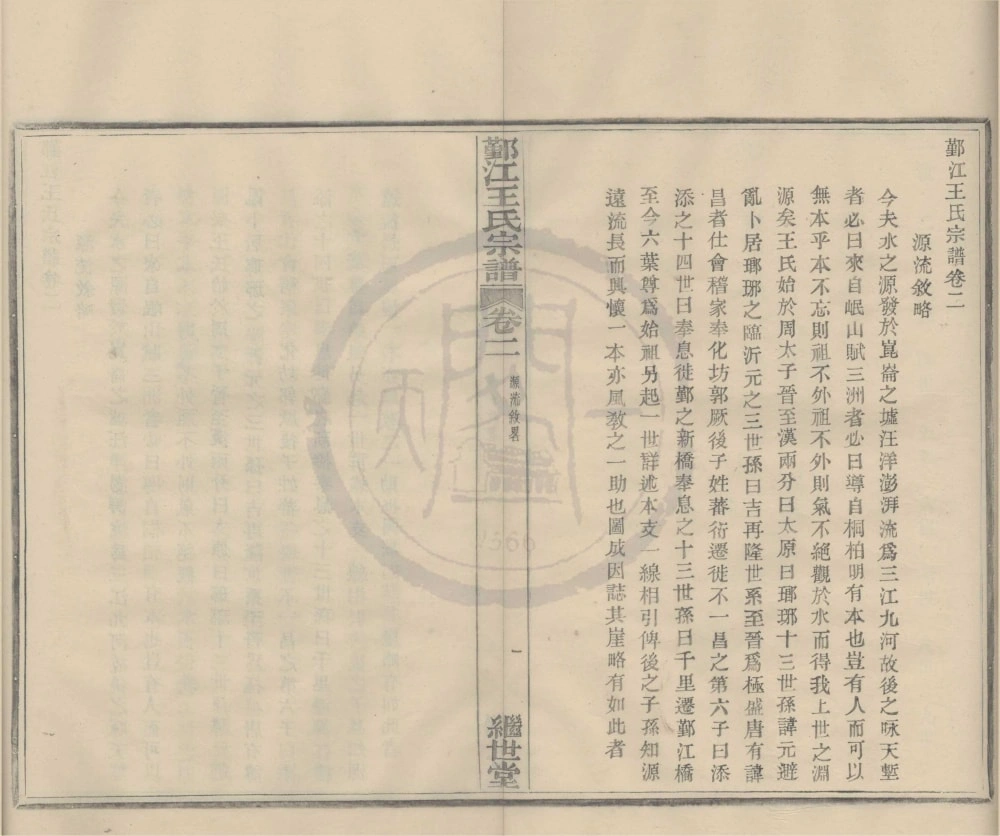 鄞江王氏宗譜卷二
源流敘略
今夫水之源發於崑崙之墟汪洋澎湃流爲三江九河故後之咏天塹
者必曰來自岷山賦三洲者必曰導自桐柏明有本也豈有人而可以
無本乎本不忘則祖不外祖不外則氣不絕觀於水而得我上世之淵
源矣王氏始於周太子晉至漢兩分曰太原曰瑯琊十三世孫諱元避
亂卜居瑯琊之臨沂元之三世孫曰吉再隆世系至晉爲極盛唐有諱
昌者仕會稽家奉化坊郭厥後子姓蕃衍遷徙不一昌之第六子曰添
添之十四世曰奉息徙鄞之新橋奉息之十三世孫曰千里遷鄞江橋
至今六葉尊爲始祖另起一世詳述本支一線相引俾後之子孫知源
遠流長而興懷一本亦風教之一助也圖成因誌其崖略有如此者
鄞江王氏宗譜
卷二
源流敘畧
一
繼世堂